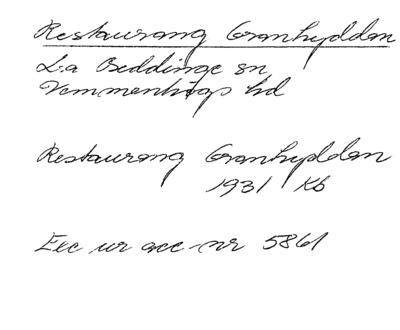 Restaurang Granhyddan
L:a Beddinge sn
Vemmenhögs hd
Restaurang Granhyddan
1931 Kb
Exc ur acc-nr 5861